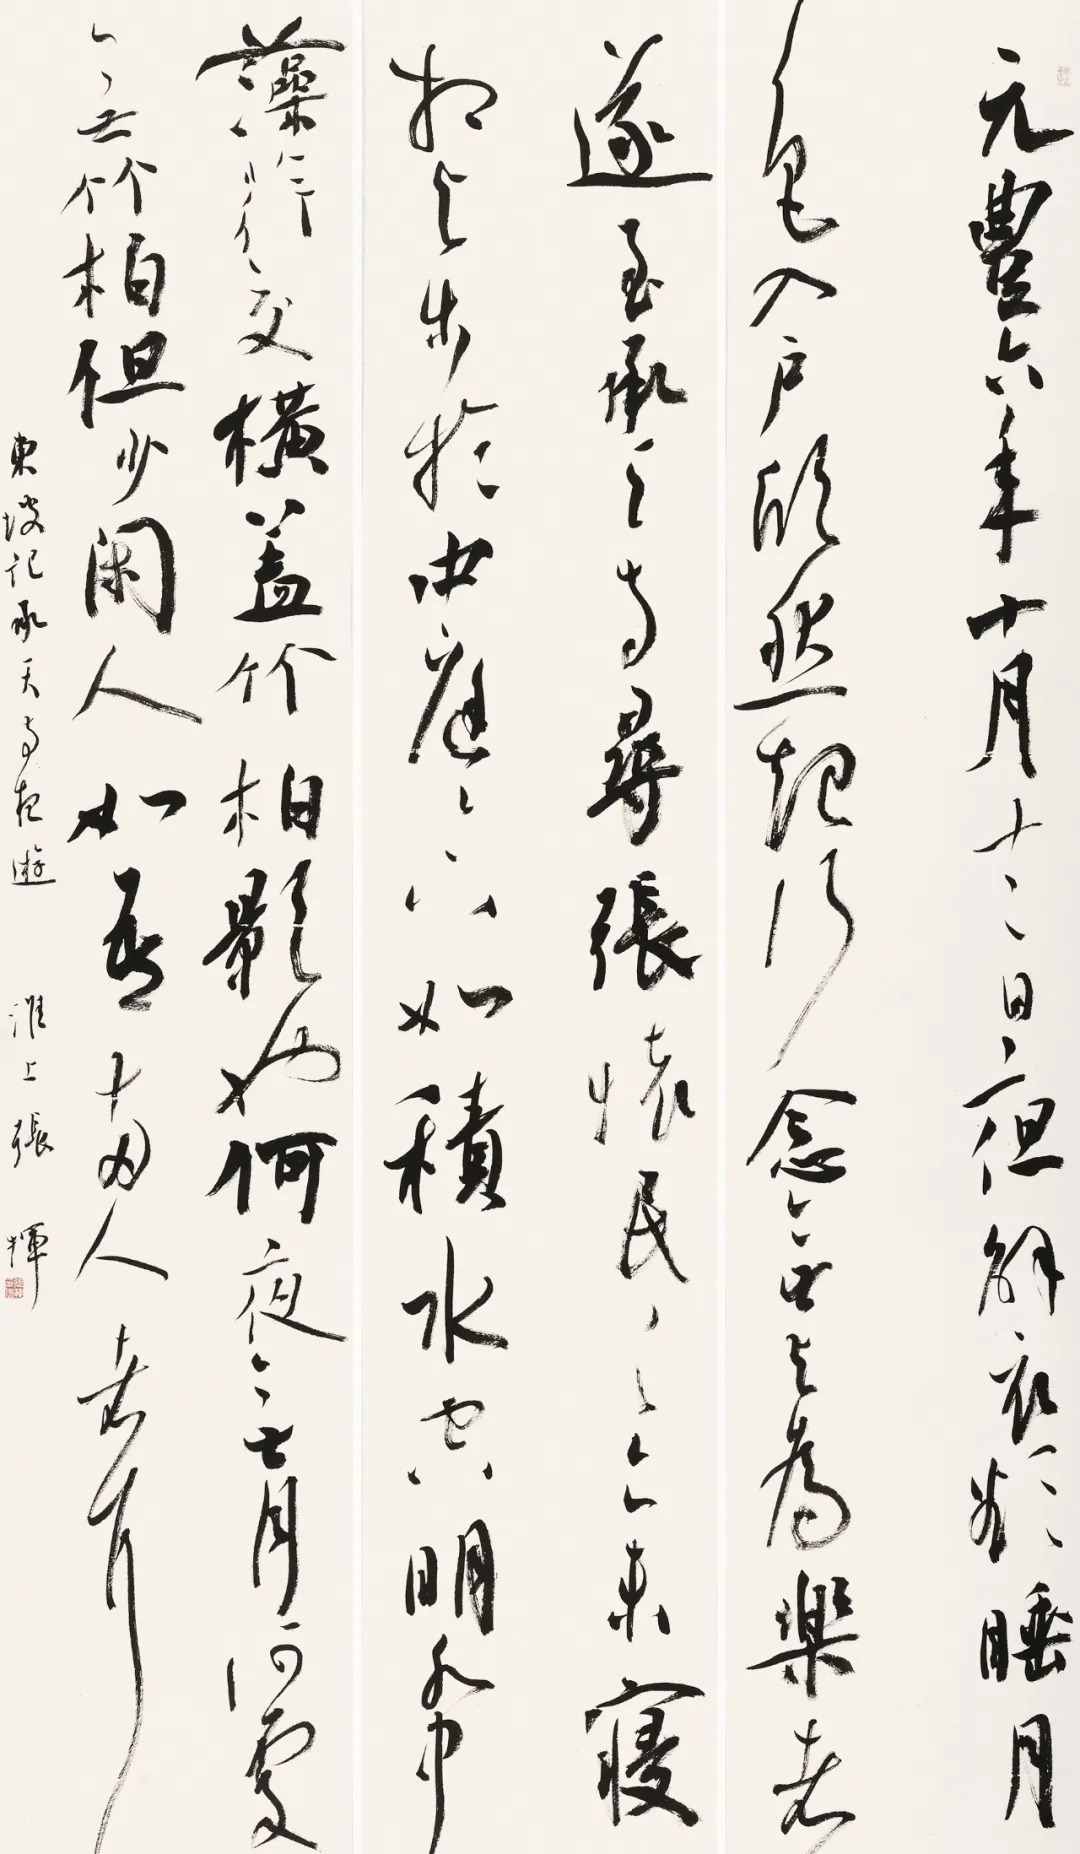 元豐六年十月十二日夜解衣欲睡月
色入戶欣然起行念無與為樂者
遂至承天寺尋張懷民々亦未寢
相與步於中庭々下如積水空明水中
藻荇交橫蓋竹柏影也何夜無月何處
無竹柏但少閑人如吾兩人者耳
東坡記承天寺夜遊 淮上張揮